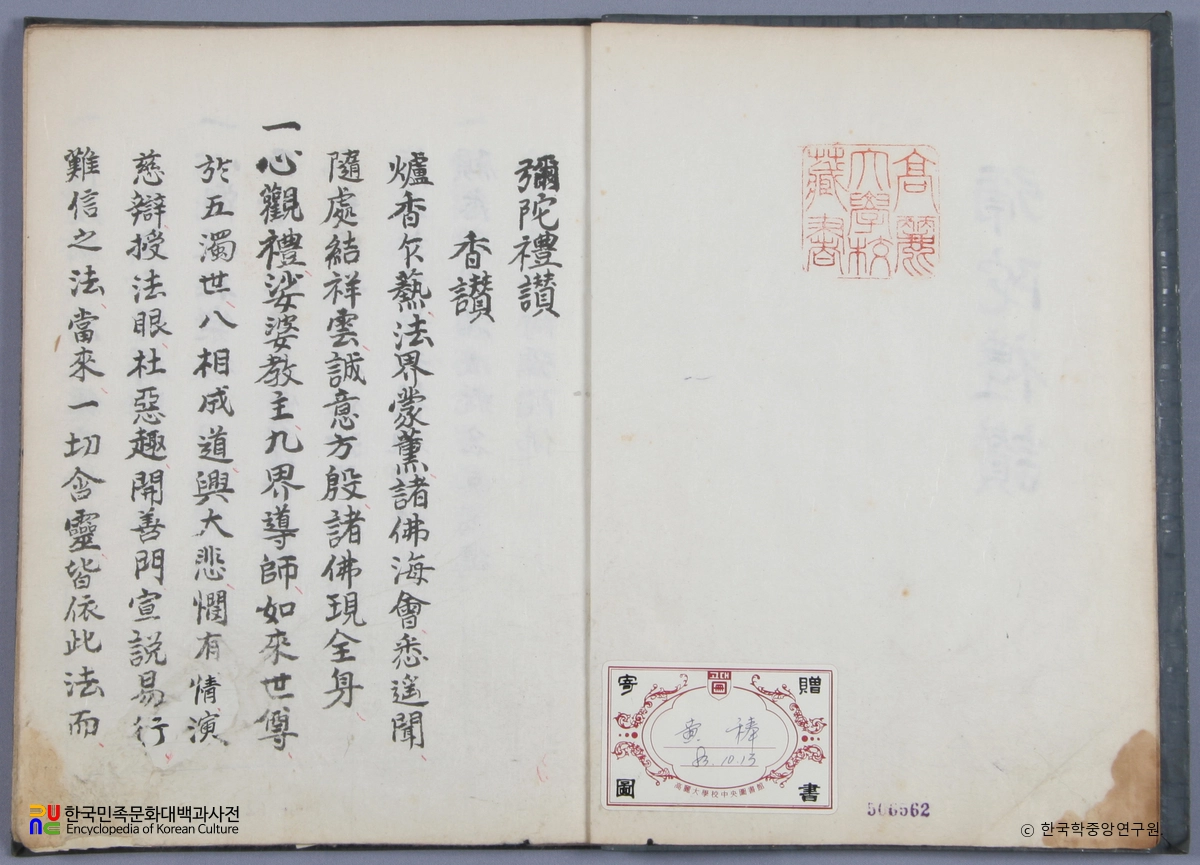 彌陀禮讃
香讃
爐香乍爇法界蒙薰諸佛海會悉遙聞
隨處結祥雲誠意方殷諸佛現全身
一心觀禮娑婆教主九界導師如來世尊
於五濁世八相成道興大悲憫有情演
慈辯授法眼杜惡趣開善門宣説易行
難信之法當來一切含靈皆依此法而
高麗
大學校
藏書
寄贈
圖書
고대
83.10.13
高麗大學校中央圖書館
506562
한국민족문화대백과사전
Encyclopedia of Korean Culture
© 한국학중앙연구원